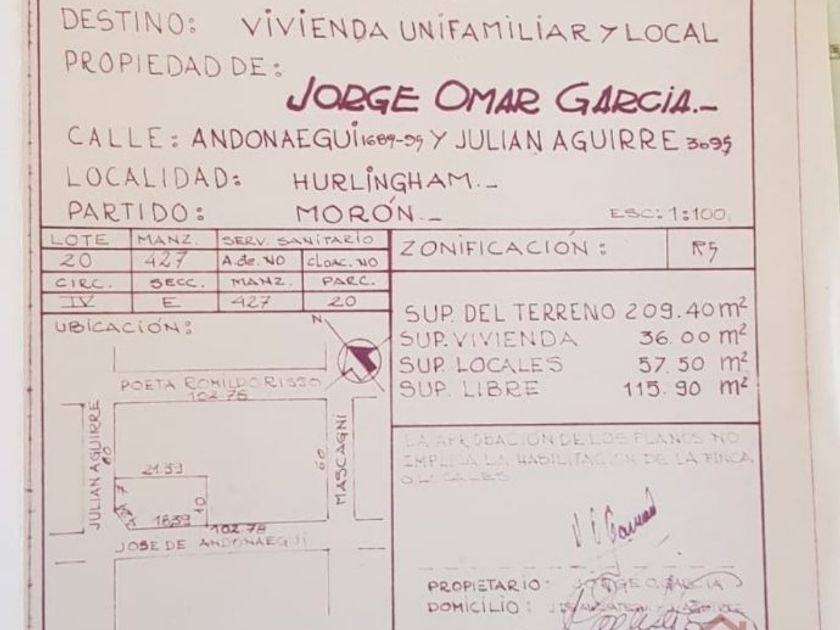 DESTINO: VIVIENDA UNIFAMILIAR Y LOCAL
PROPIEDAD DE:
JORGE OMAR GARCIA.-
CALLE: ANDONAEGUI 1689-95 Y JULIAN AGUIRRE 3095
LOCALIDAD: HURLINGHAM.-
PARTIDO: MORÓN.-
ESC: 1:100.
LOTE MANZ. SERV. SANITARIO
20 427 A.de. NO CLOAC. NO
CIRC. SECC. MANZ. PARC.
IV E 427 20
ZONIFICACIÓN: R5
SUP. DEL TERRENO 209.40 m²
SUP. VIVIENDA 36.00 m²
SUP. LOCALES 57.50 m²
SUP. LIBRE 115.90 m²
UBICACIÓN:
N
POETA ROMILDO RISSO
102.78
JULIAN AGUIRRE
60
60
MASCAGNI
21.39
10
18.39
102.78
JOSE DE ANDONAEGUI
LA APROBACION DE LOS PLANOS NO
IMPLICA LA HABILITACION DE LA FINCA
O LOCALES
PROPIETARIO: JORGE O. GARCIA
DOMICILIO: